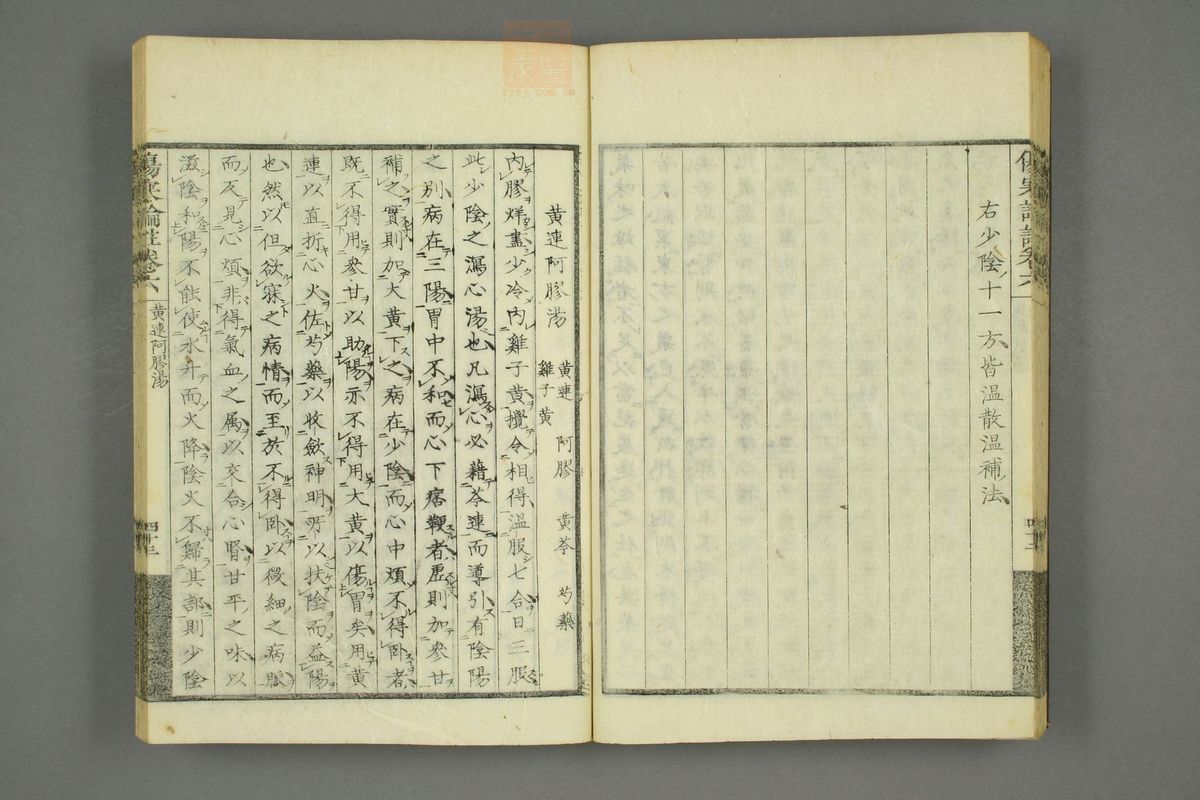 右少陰十一方皆温散温補法
黄連阿膠湯 黄連 阿膠 黄芩 芍藥 雞子黄
内膠烊盡少冷内雞子黄攪令相得温服七合日三服
此少陰之瀉心湯也凡瀉心必藉芩連而導引有陰陽
之別病在三陽胃中不和而心下痞鞕者虚則加參甘
補之實則加大黄下之病在少陰而心中煩不得卧者
既不得用參甘以助陽亦不得用大黄以傷胃矣用黄
連以直折心火佐芍藥以收斂神明所以扶陰而益陽
也然以但欲寐之病情而至於不得卧以微細之病脈
而反見心煩非得氣血之属以交合心腎甘平之味以
滋陰和陽不能使水升而火降陰火不歸其部則少陰
傷寒論註卷六 黄連阿膠湯 四十三